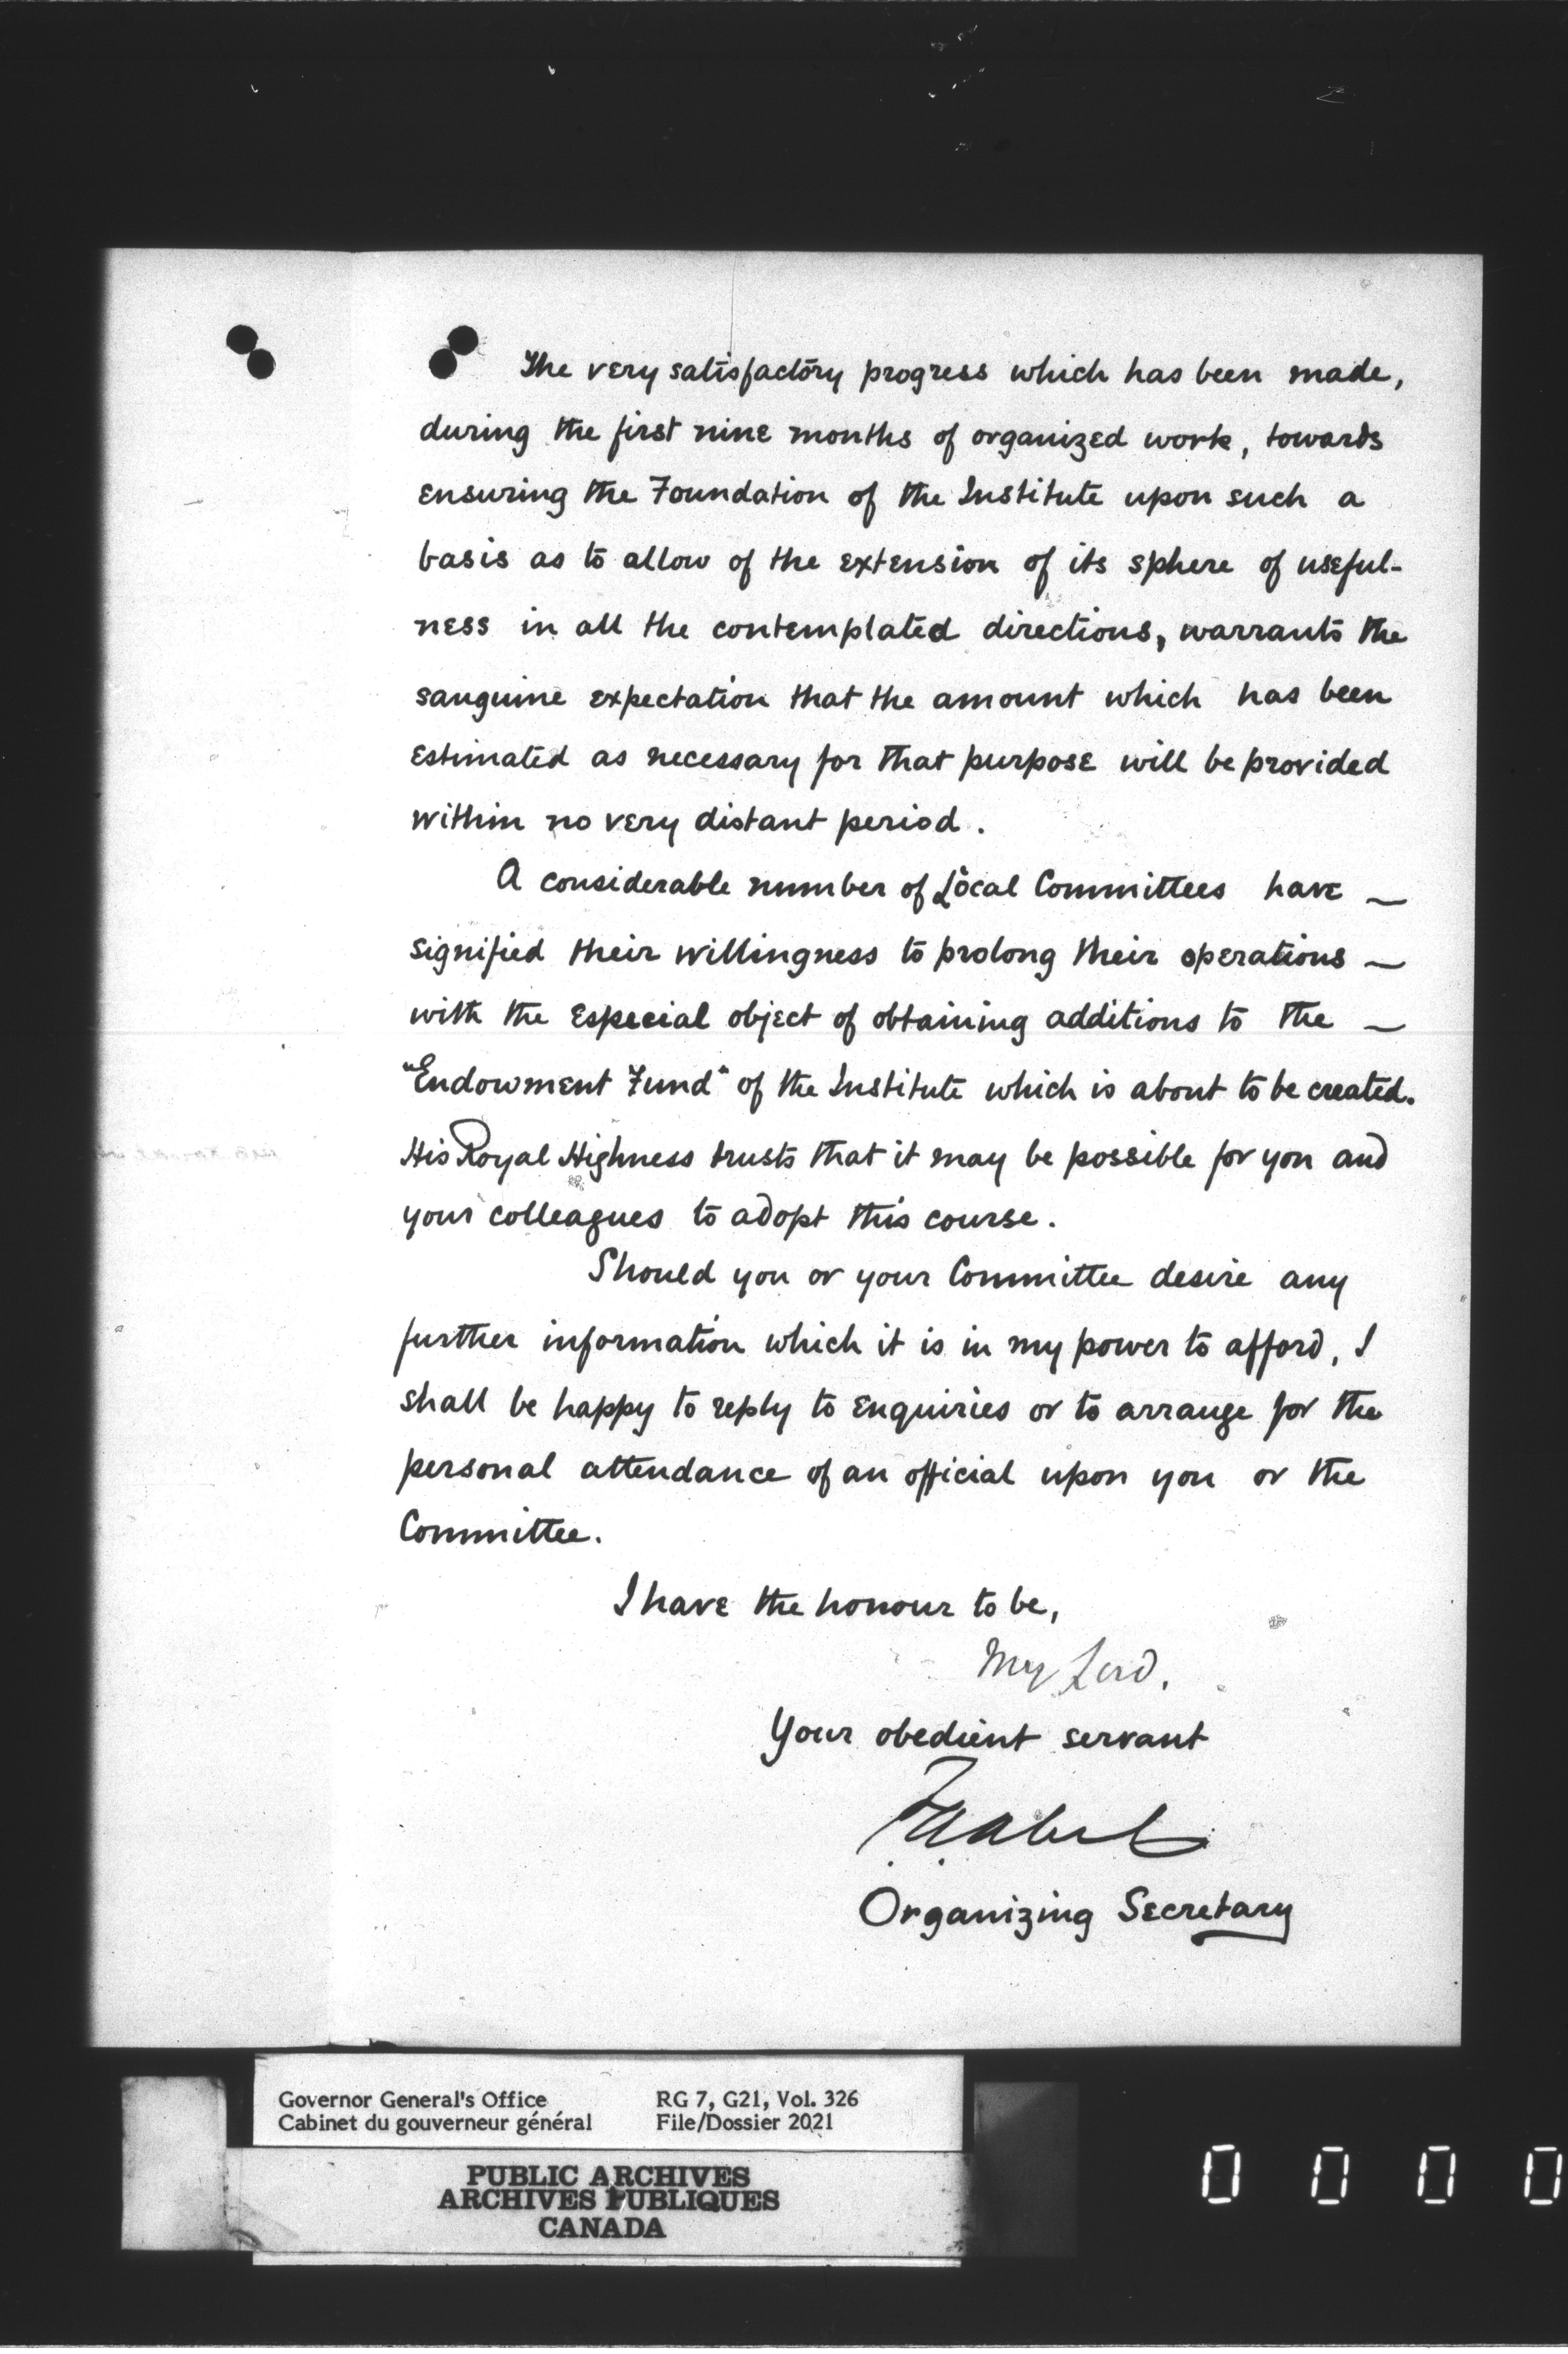 The very satisfactory progress which has been made,
during the first nine months of organized work, towards
ensuring the Foundation of the Institute upon such a
basis as to allow of the extension of its sphere of useful-
ness in all the contemplated directions, warrants the
sanguine expectation that the amount which has been
estimated as necessary for that purpose will be provided
within no very distant period.
A considerable number of Local Committees have —
signified their willingness to prolong their operations —
with the especial object of obtaining additions to the —
"Endowment Fund" of the Institute which is about to be created.
His Royal Highness trusts that it may be possible for you and
your colleagues to adopt this course.
Should you or your Committee desire any
further information which it is in my power to afford, I
shall be happy to reply to enquiries or to arrange for the
personal attendance of an official upon you or the
Committee.
I have the honour to be,
My Lord.
Your obedient servant
F A Abel
Organizing Secretary
Governor General's Office RG 7, G21, Vol. 326
Cabinet du gouverneur général File/Dossier 2021
PUBLIC ARCHIVES
ARCHIVES PUBLIQUES
CANADA
0 0 0 0